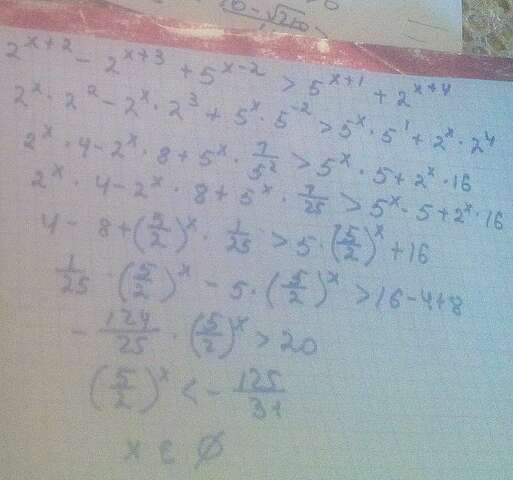 10 - √210
2^{x+2} - 2^{x+3} + 5^{x-2} > 5^{x+1} + 2^{x+4}
2^x · 2^2 - 2^x · 2^3 + 5^x · 5^{-2} > 5^x · 5^1 + 2^x · 2^4
2^x · 4 - 2^x · 8 + 5^x · \frac{1}{5^2} > 5^x · 5 + 2^x · 16
2^x · 4 - 2^x · 8 + 5^x · \frac{1}{25} > 5^x · 5 + 2^x · 16
4 - 8 + (\frac{5}{2})^x · \frac{1}{25} > 5 · (\frac{5}{2})^x + 16
\frac{1}{25} (\frac{5}{2})^x - 5 · (\frac{5}{2})^x > 16 - 4 + 8
- \frac{124}{25} · (\frac{5}{2})^x > 20
(\frac{5}{2})^x < - \frac{125}{31}
x ∈ ∅